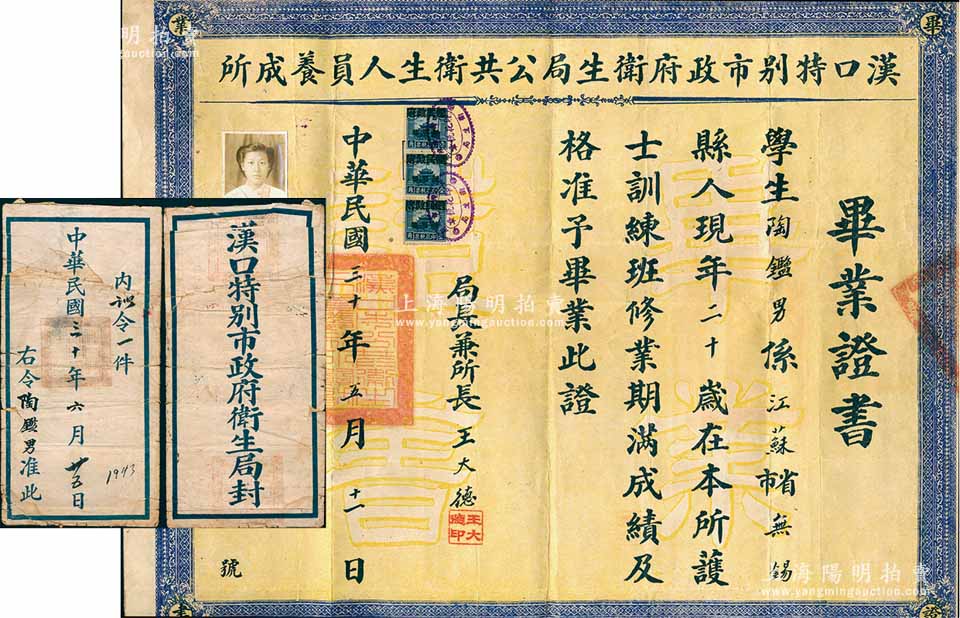 漢口特別市政府衛生局公共衛生人員養成所
畢業證書
學生陶鑑男係江蘇省市無錫
縣人現年二十歲在本所護
士訓練班修業期滿成績及
格准予畢業此證
局長兼所長王大德
王大德印
中華民國三十年五月十一日
號
畢
業
證
書
畢業證書
漢口特別市政府衛生局封
內訓令一件
右令陶鑑男准此
中華民國三十年六月廿五日
1943
上海陽明拍賣
www.yangmingauction.com
上海陽明拍賣
www.yangmingauction.com
上海陽明拍賣
www.yangmingauction.com